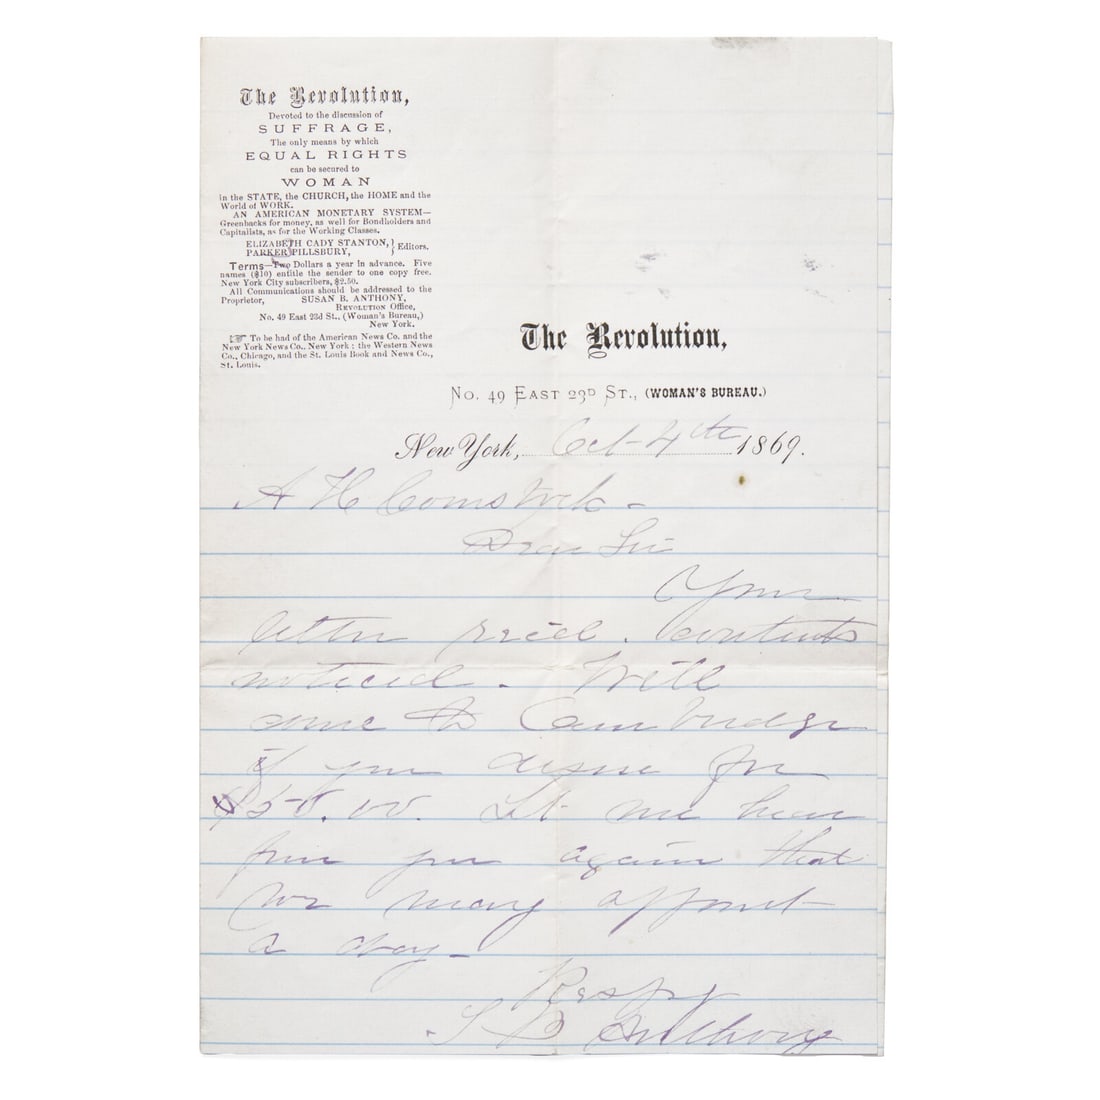 The Revolution,
Devoted to the discussion of
SUFFRAGE,
The only means by which
EQUAL RIGHTS
can be secured to
WOMAN
in the STATE, the CHURCH, the HOME and the
World of WORK.
AN AMERICAN MONETARY SYSTEM—
Greenbacks for money, as well for Bondholders and
Capitalists, as for the Working Classes.
ELIZABETH CADY STANTON, } Editors.
PARKER PILLSBURY,
Terms—Two Dollars a year in advance. Five
names ($10) entitle the sender to one copy free.
New York City subscribers, $2.50.
All Communications should be addressed to the
Proprietor, SUSAN B. ANTHONY,
REVOLUTION Office,
No. 49 East 23d St., (Woman's Bureau,)
New York.
☞ To be had of the American News Co. and the
New York News Co., New York; the Western News
Co., Chicago, and the St. Louis Book and News Co.,
St. Louis.
The Revolution,
No. 49 East 23D St., (WOMAN'S BUREAU.)
New York, Oct- 4th 1869.
A H Comstock -
Dear Sir
Your
letter recied. contents
noticed. Will
come to Cambridge
if you desire for
$50.00. Let me hear
from you again that
we may appoint
a day -
Respy
S B Anthony